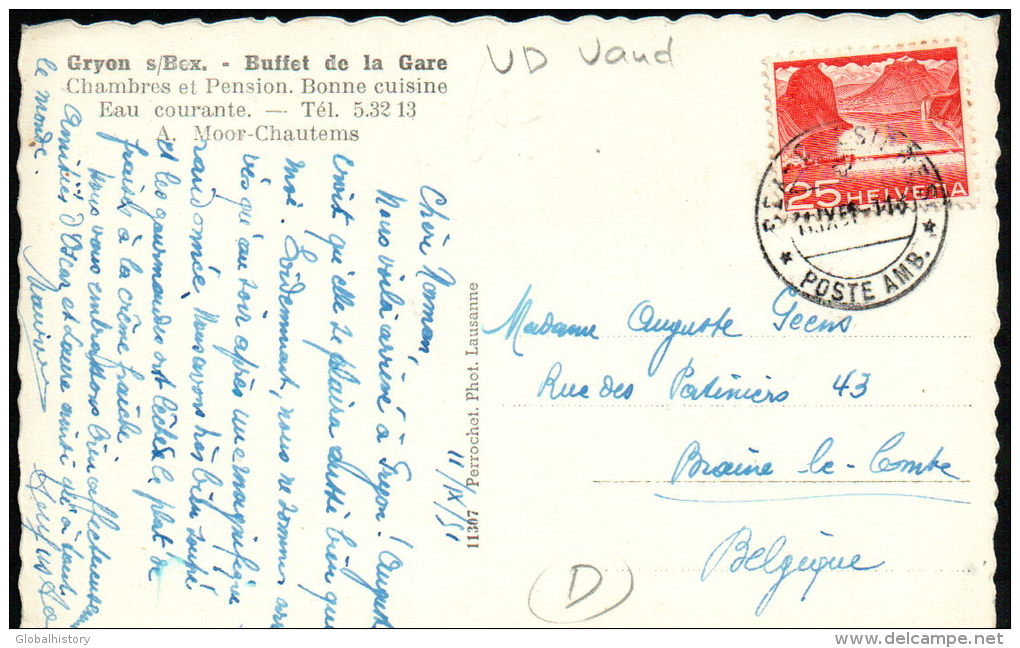 Gryon s/Bex. - Buffet de la Gare
Chambres et Pension. Bonne cuisine
Eau courante. — Tél. 5.32 13
A. Moor-Chautems
UD Vaud
25 HELVETIA
POSTE AMB.
11/IX/51
Chère Maman,
Nous voilà arrivé à Gryon. August
croit qu'elle se plaira aussi bien que
moi. Evidemment, nous ne sommes arri
vés qu'au soir après une magnifique
randonnée. Nous avons très bien soupé
et les gourmandes ont léché le plat de
fraises à la crème fraîche
Nous vous embrassons bien affectueusem
Amitiés d'Oscar et Laure ainsi qu'à tout
le monde.
11307 Perrochet. Phot. Lausanne
Madame Auguste Geens
Rue des Patiniers 43
Braine le-Comte
Belgique
D
Globalhistory
delcampe.net